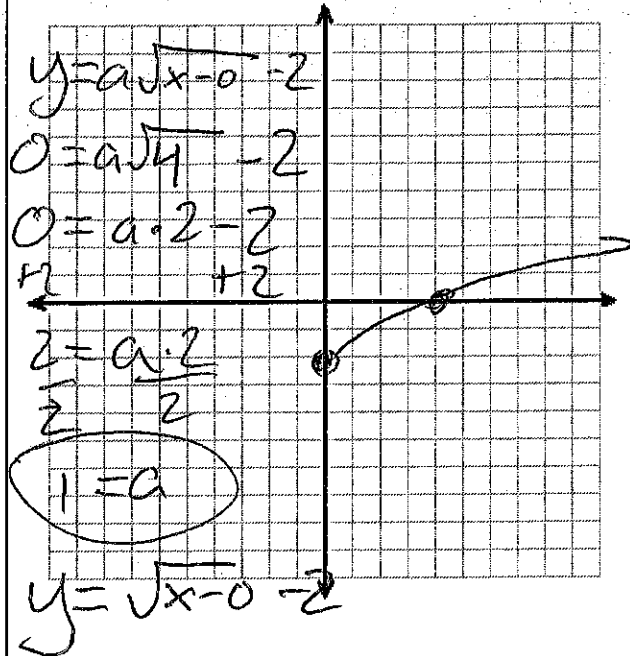 y=a√x-0 -2
0=a√4 -2
0=a·2-2
+2 +2
2=a·2
2 2
1=a
y=√x-0 -2